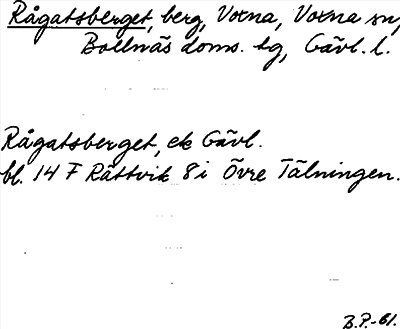 Rågatsberget, berg, Voxna, Voxna sn,
Bollnäs doms. tg, Gävl. l.
Rågatsberget, ek Gävl.
bl. 14 F Rättvik 8 i Övre Tälningen.
B.P.-61.